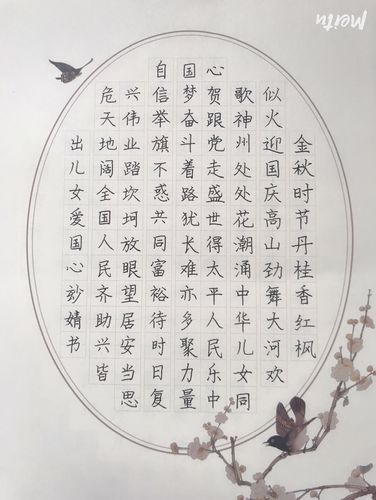 金秋时节丹桂香红枫
似火迎国庆高山劲舞大河欢
歌神州处处花潮涌中华儿女同
心贺跟党走盛世得太平人民乐中
国梦奋斗着路犹长难亦多聚力量
自信举旗不惑共同富裕待时日复
兴伟业踏坎坷放眼望居安当思
危天地阔全国人民齐助兴皆
出儿女爱国心婧书
Meitu